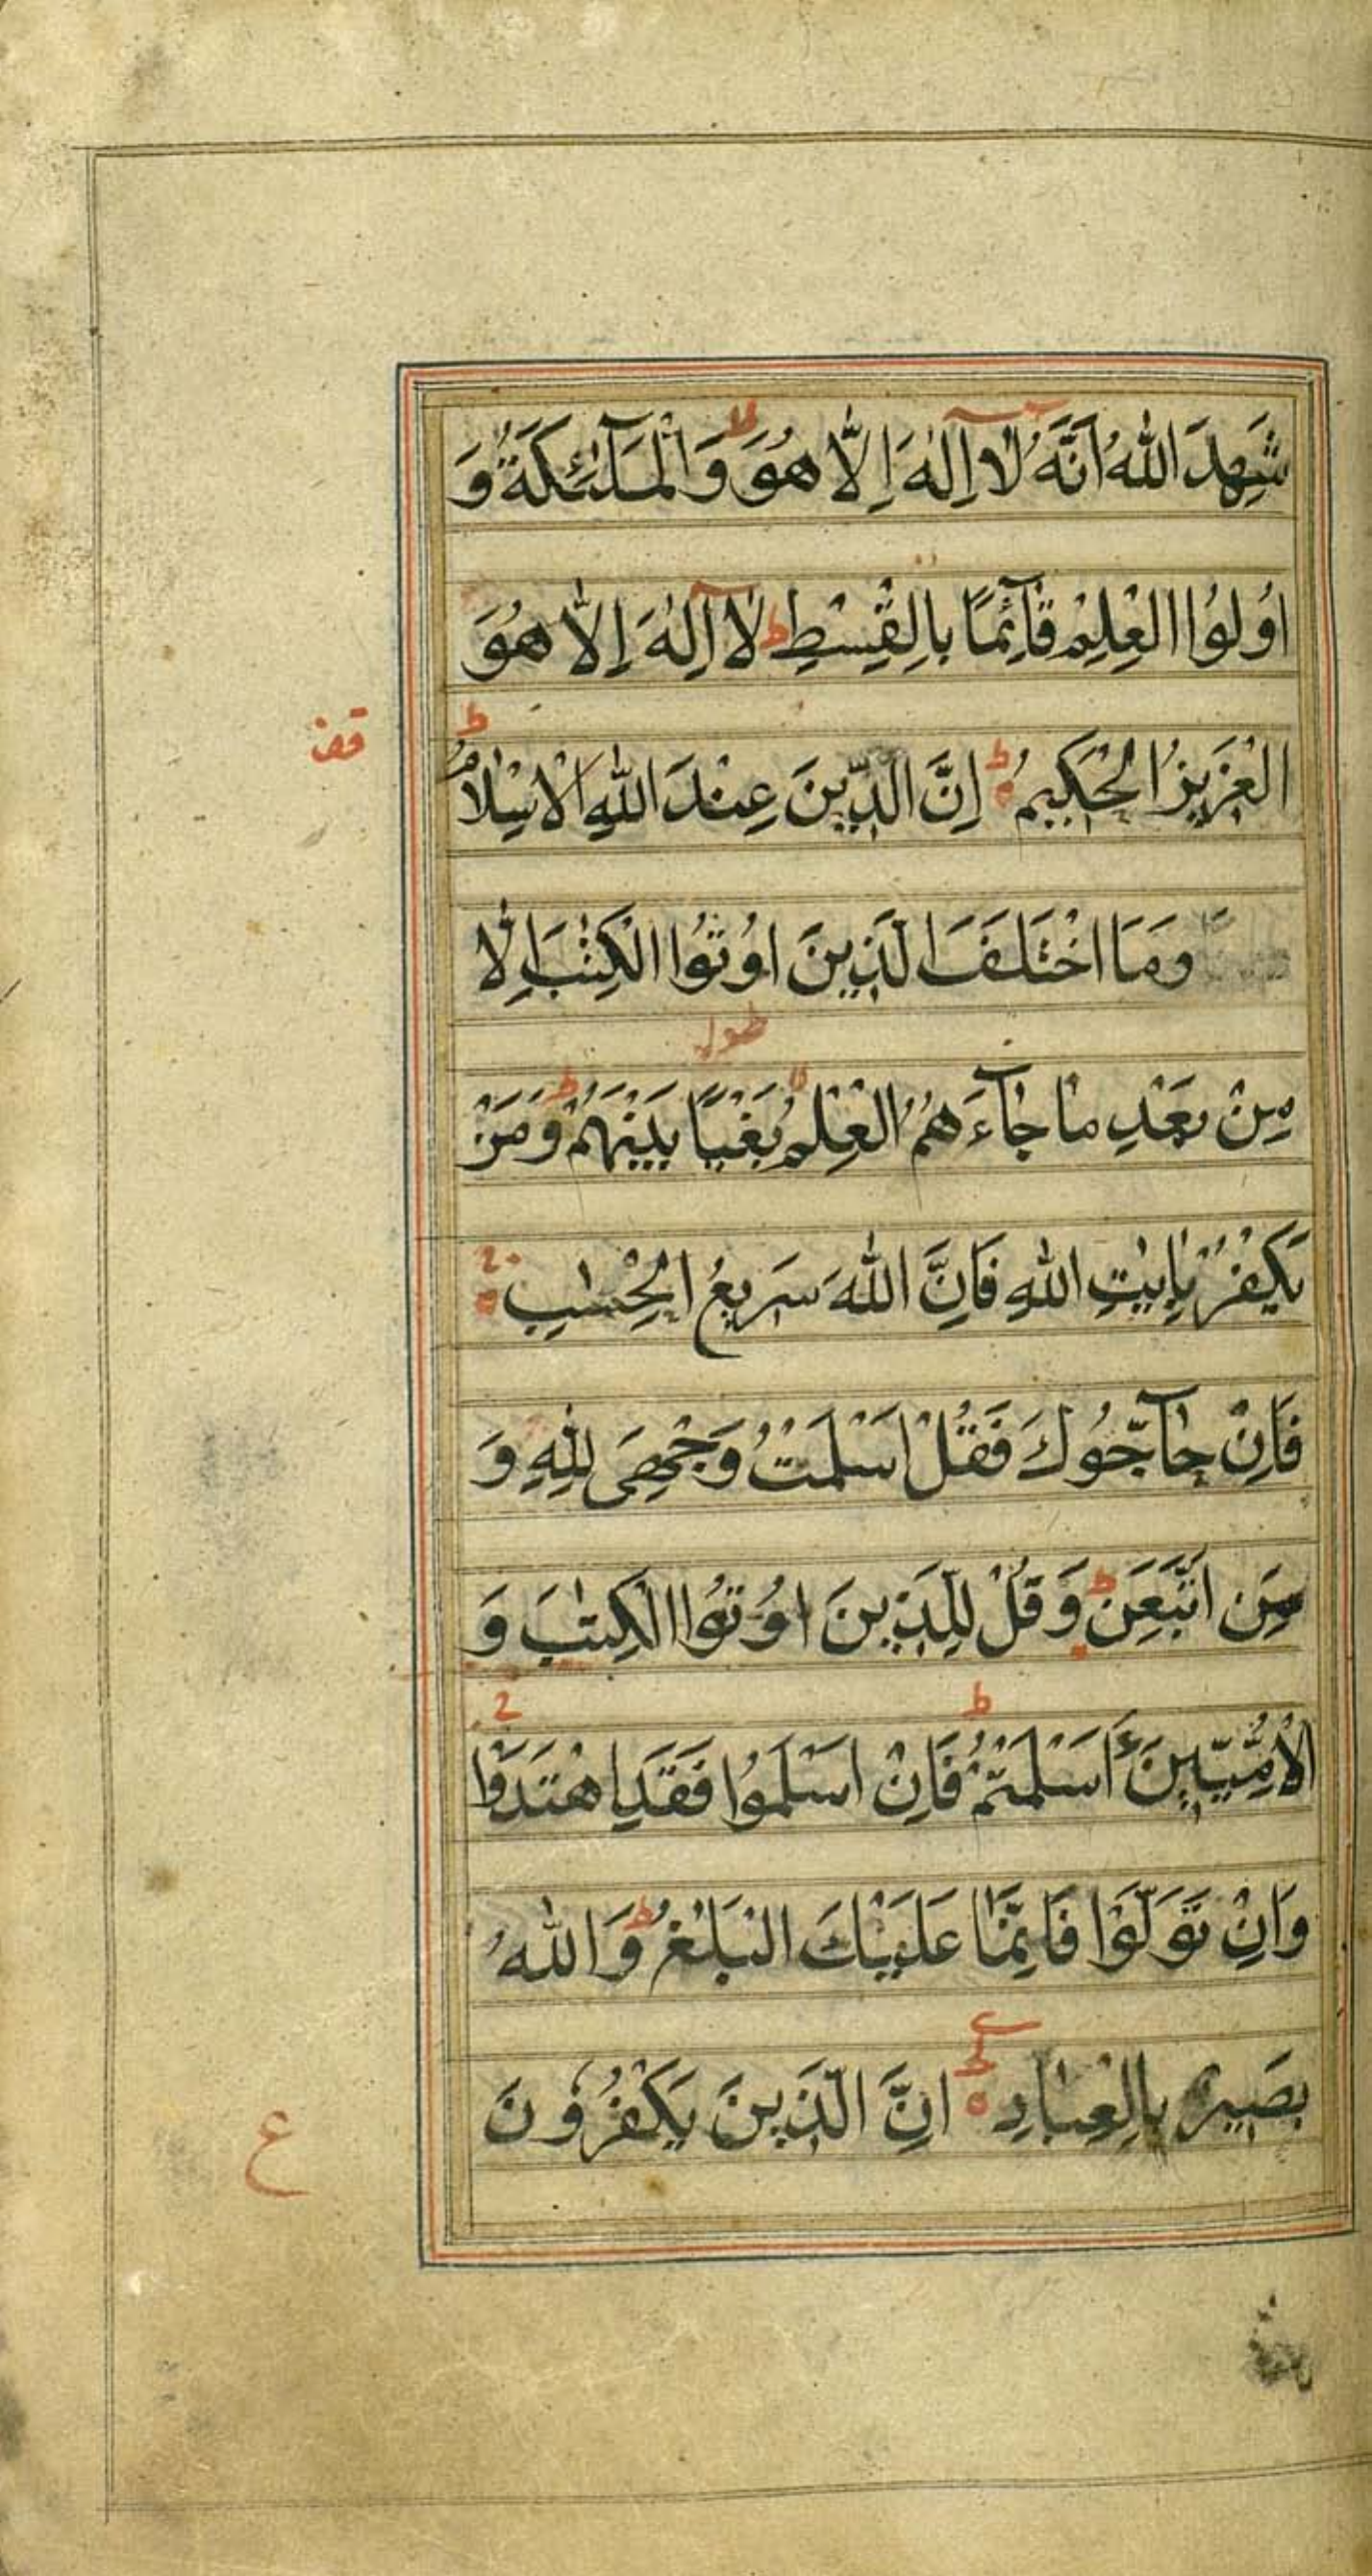 شَهِدَ اللهُ اَنَّهُ لَا اِلٰهَ اِلَّا هُوَ وَالْمَلٰٓئِكَةُ وَ
اُولُوا الْعِلْمِ قَآئِمًا بِالْقِسْطِ ط لَا اِلٰهَ اِلَّا هُوَ
الْعَزِيزُ الْحَكِيمُ ط اِنَّ الدِّينَ عِنْدَ اللهِ الْاِسْلَامُ ط
قف
وَمَا اخْتَلَفَ الَّذِينَ اُوتُوا الْكِتٰبَ اِلَّا
مِنْ بَعْدِ مَا جَآءَهُمُ الْعِلْمُ بَغْيًا بَيْنَهُمْ ط وَمَنْ
يَكْفُرْ بِاٰيٰتِ اللهِ فَاِنَّ اللهَ سَرِيعُ الْحِسَابِ
فَاِنْ حَآجُّوكَ فَقُلْ اَسْلَمْتُ وَجْهِيَ لِلّٰهِ وَ
مَنِ اتَّبَعَنِ ط وَقُلْ لِلَّذِينَ اُوتُوا الْكِتٰبَ وَ
الْاُمِّيّٖنَ ءَاَسْلَمْتُمْ ط فَاِنْ اَسْلَمُوا فَقَدِ اهْتَدَوْا
وَاِنْ تَوَلَّوْا فَاِنَّمَا عَلَيْكَ الْبَلٰغُ ط وَاللهُ
بَصِيرٌ بِالْعِبَادِ اِنَّ الَّذِينَ يَكْفُرُونَ
ع